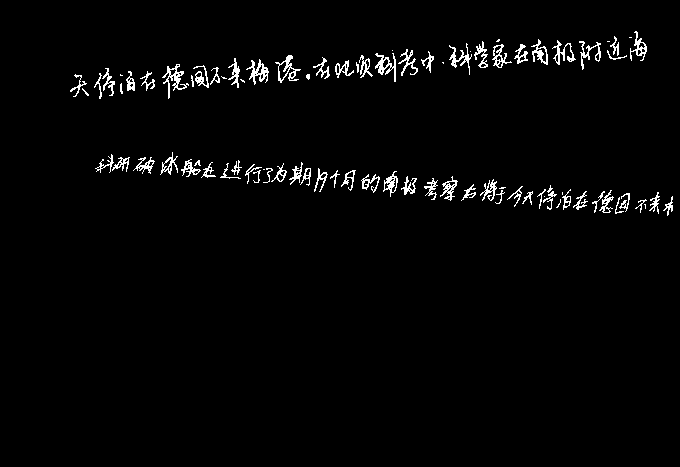 天停泊在德国不来梅港。在此项科考中，科学家在南极附近海
科研破冰船在进行了为期19个月的南极考察后将于今天停泊在德国不来